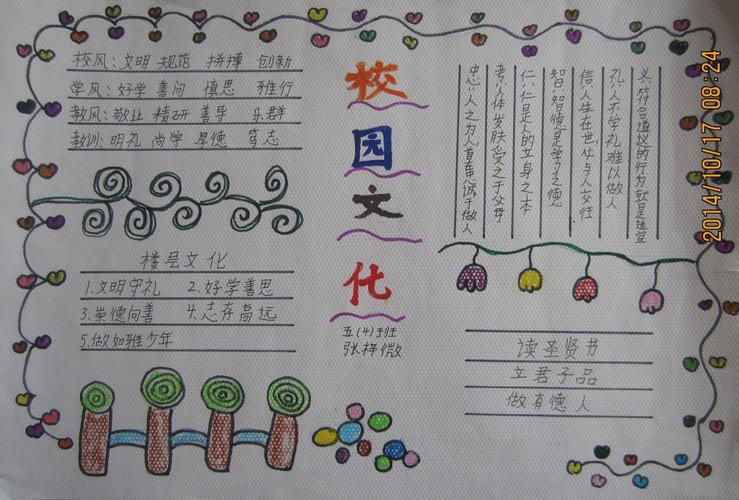 校风:文明 规范 拼搏 创新
学风:好学 善问 慎思 雅行
教风:敬业 精研 善导 乐群
教训:明礼 尚学 厚德 笃志
楼层文化
1.文明守礼 2.好学善思
3.崇德向善 4.志存高远
5.做如雅少年
校园文化
五(4)班
张梓微
义:符合道议的行为就是适宜
礼:人不学礼难以做人
信:人生在世仕与人交往
智:智德是学习之德
仁:仁是人的立身之本
孝:人体发肤受之于父母
忠:人之为人首重忠诚于做人
读圣贤书
立君子品
做有德人
2014/10/17 08:24